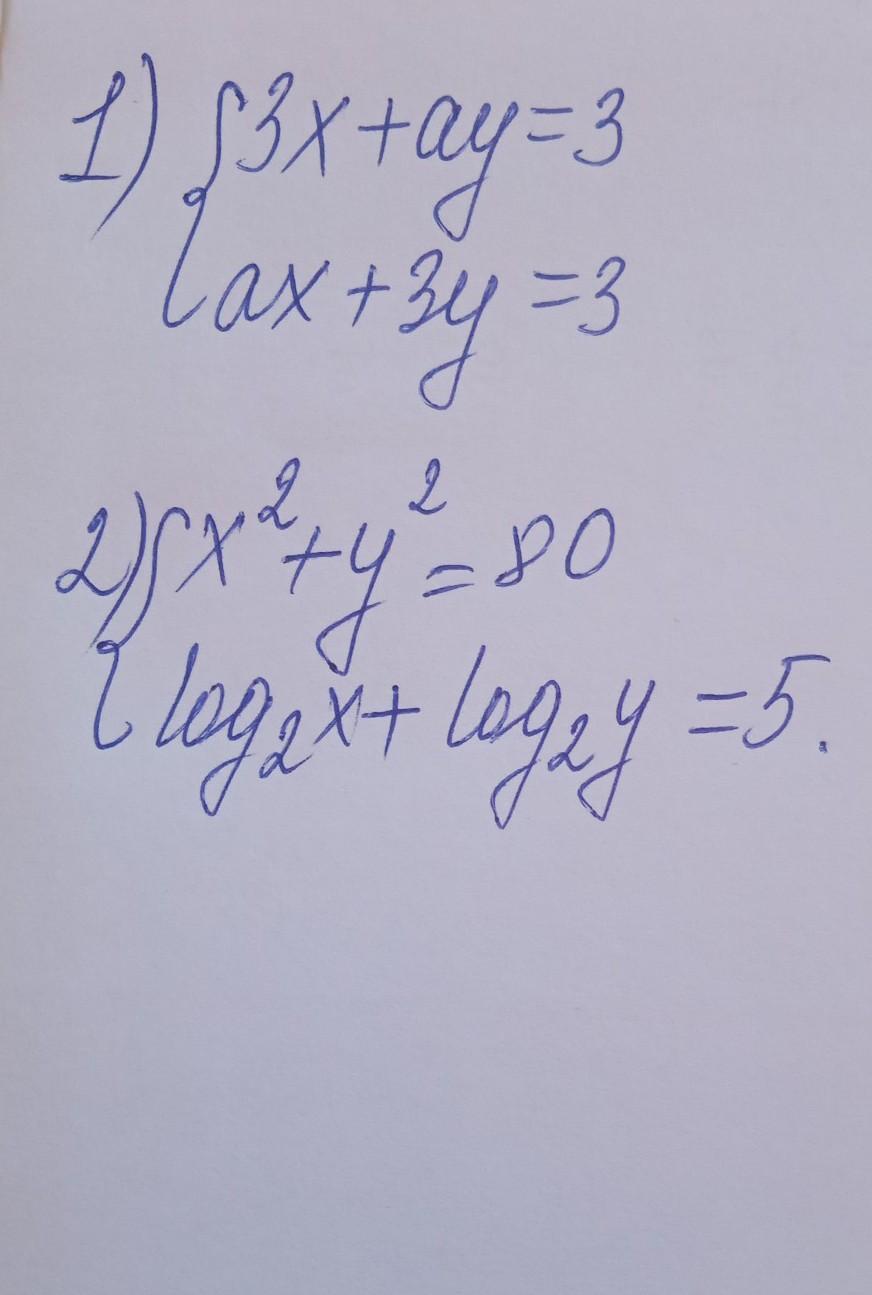 1) { 3x + ay = 3
ax + 3y = 3
2) { x² + y² = 80
log₂x + log₂y = 5.